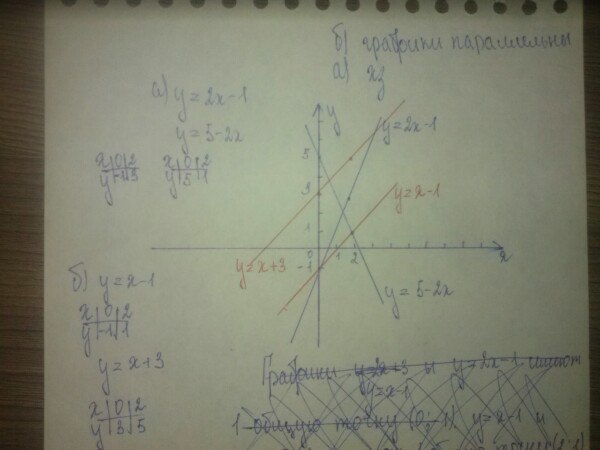 б) графики параллельны
а) хз
а) y = 2x-1
y = 5-2x
x 0 2
y -1 3
x 0 2
y 5 1
б) y = x-1
x 0 2
y -1 1
y = x+3
x 0 2
y 3 5
y
y=2x-1
5
y=x-1
3
1
0 1 2
x
y=x+3
-1
y = 5-2x
Графики y=2x+3 и y=2x-1 имеют
y=x-1
1 общую точку (0;-1) y=x-1 и